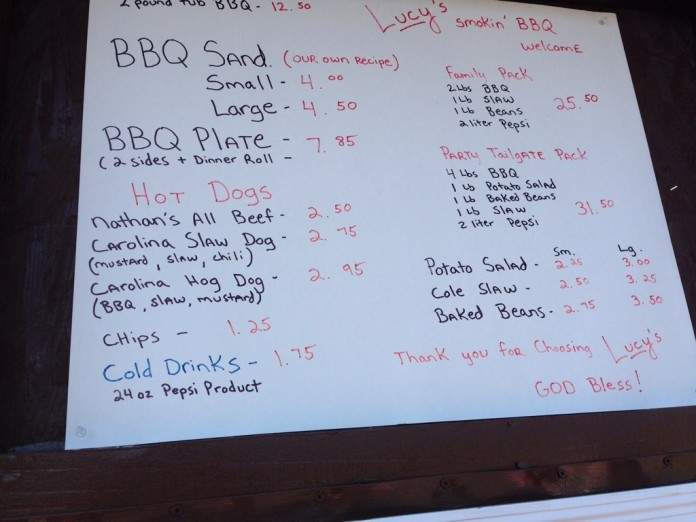 2 pound tub BBQ - 12.50
BBQ Sand. (our own Recipe)
Small - 4.00
Large - 4.50
BBQ Plate - 7.85
(2 sides + Dinner Roll -
Hot Dogs
Nathan's All Beef - 2.50
Carolina Slaw Dog - 2.75
(mustard, slaw, chili)
Carolina Hog Dog - 2.95
(BBQ, slaw, mustard)
Chips - 1.25
Cold Drinks - 1.75
24 oz Pepsi Product
Lucy's Smokin' BBQ
Welcome
Family Pack
2 Lbs BBQ
1 Lb Slaw
1 Lb Beans 25.50
2 liter Pepsi
Party Tailgate Pack
4 Lbs BBQ
1 Lb Potato Salad
1 Lb Baked Beans
1 Lb Slaw 31.50
2 liter Pepsi
Sm. Lg.
Potato Salad - 2.25 3.00
Cole Slaw - 2.50 3.25
Baked Beans - 2.75 3.50
Thank you for Choosing Lucy's
GOD Bless!